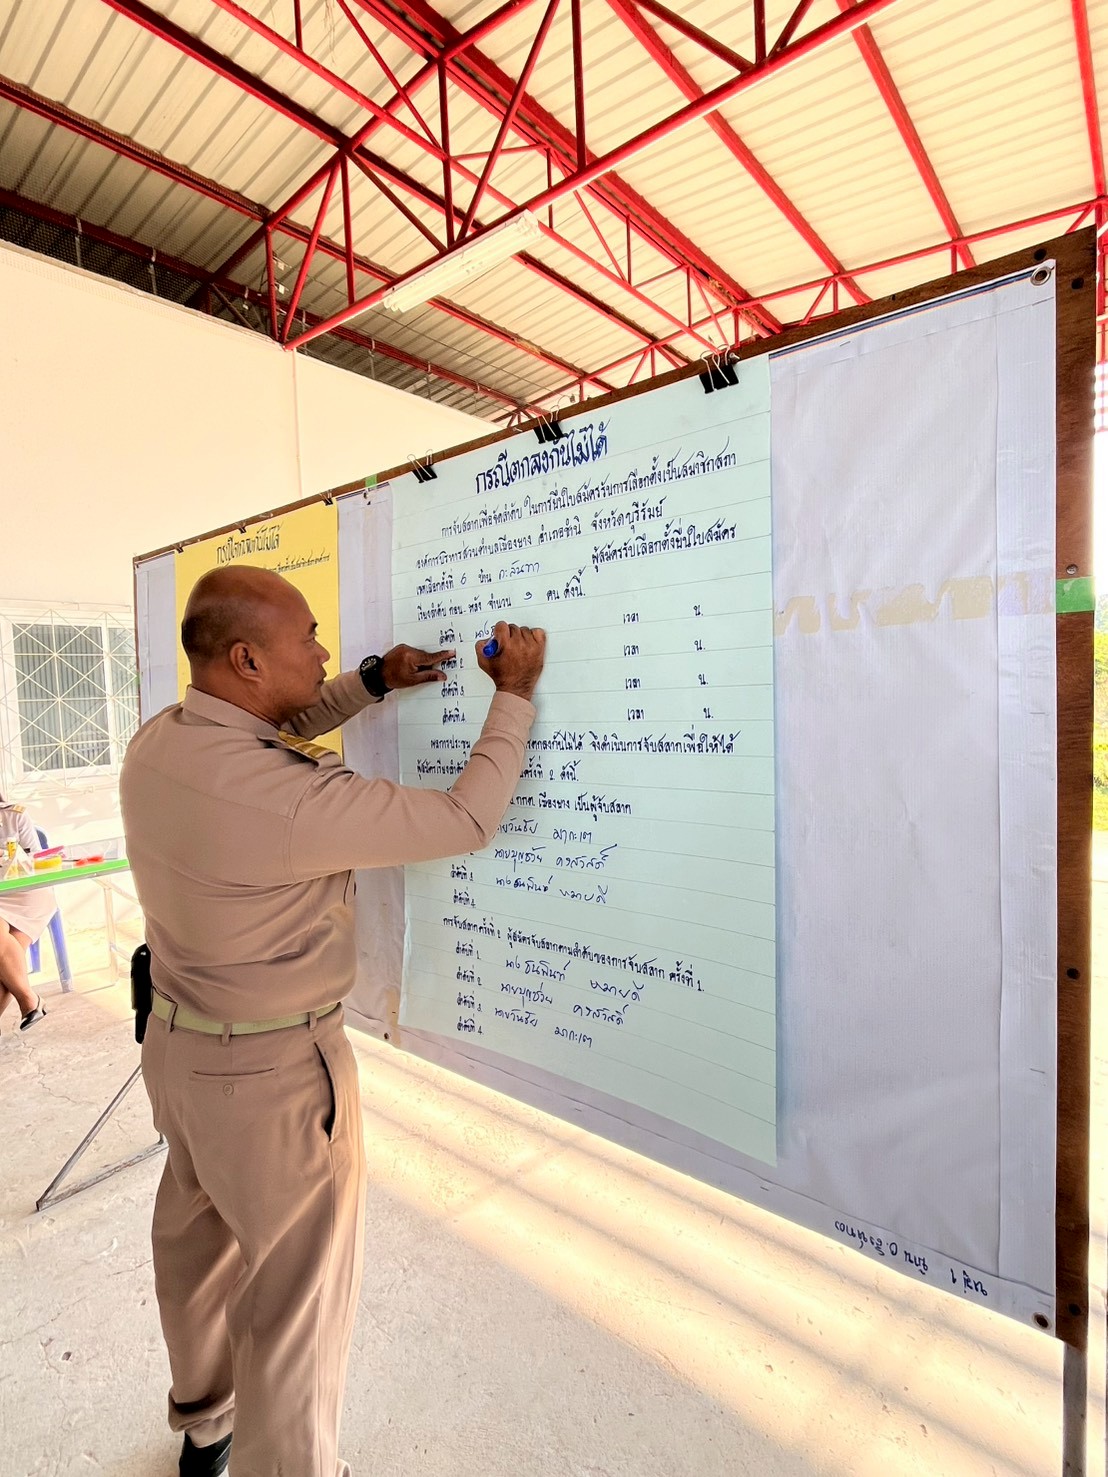 กรณีตกลงกันไม่ได้
กรณีตกลงกันไม่ได้
การจับสลากเพื่อจัดลำดับ ในการยื่นใบสมัครรับการเลือกตั้งเป็นสมาชิกสภา
องค์การบริหารส่วนตำบลเมืองยาง อำเภอชำนิ จังหวัดบุรีรัมย์
เขตเลือกตั้งที่ 6 บ้าน กะลันทา ผู้สมัครรับเลือกตั้งยื่นใบสมัคร
เรียงลำดับ ก่อน - หลัง จำนวน 3 คน ดังนี้.
ลำดับที่ 1. นาง เวลา น.
ลำดับที่ 2. เวลา น.
ลำดับที่ 3. เวลา น.
ลำดับที่ 4. เวลา น.
ผลการประชุม ตกลงกันไม่ได้ จึงดำเนินการจับสลากเพื่อให้ได้
ผู้สมัครเรียงลำดับ ครั้งที่ 2 ดังนี้.
เมืองยาง เป็นผู้จับสลาก
นายวันชัย มากะเต
นายบุญช่วย ควรสวัสดิ์
ลำดับที่ 3. นางธนพินท์ หมายดี
ลำดับที่ 4.
การจับสลากครั้งที่ 2 ผู้สมัครจับสลากตามลำดับของการจับสลาก ครั้งที่ 1.
ลำดับที่ 1. นางธนพินท์ หมายดี
ลำดับที่ 2. นายบุญช่วย ควรสวัสดิ์
ลำดับที่ 3. นายวันชัย มากะเต
ลำดับที่ 4.